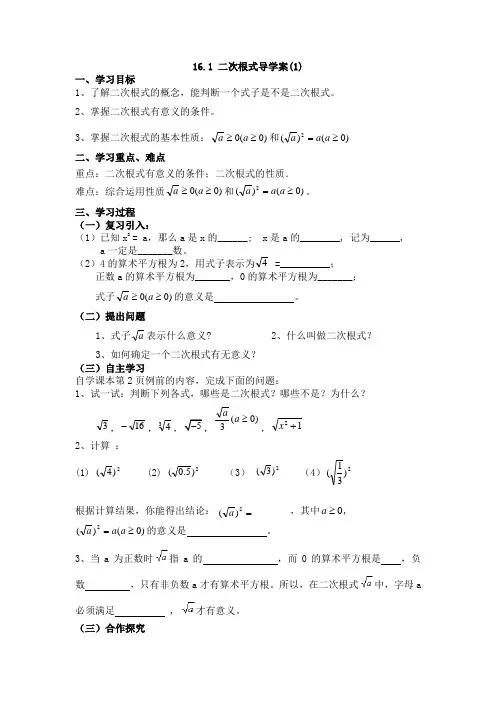 16.1 二次根式导学案(1)
一、学习目标
1、了解二次根式的概念，能判断一个式子是不是二次根式。
2、掌握二次根式有意义的条件。
3、掌握二次根式的基本性质：√a ≥ 0(a ≥ 0) 和(√a)² = a(a ≥ 0)
二、学习重点、难点
重点：二次根式有意义的条件；二次根式的性质．
难点：综合运用性质√a ≥ 0(a ≥ 0) 和 (√a)² = a(a ≥ 0)。
三、学习过程
（一）复习引入：
(1）已知x² = a，那么a是x的______; x是a的________, 记为______,
a一定是_______数。
（2）4的算术平方根为2，用式子表示为√4 =__________；
正数a的算术平方根为_______，0的算术平方根为_______；
式子√a ≥ 0(a ≥ 0) 的意义是 。
（二）提出问题
1、式子√a 表示什么意义? 2、什么叫做二次根式？
3、如何确定一个二次根式有无意义？
（三）自主学习
自学课本第2页例前的内容，完成下面的问题：
1、试一试：判断下列各式，哪些是二次根式？哪些不是？为什么？
√3，－√16，∛4，√−5，√a/3 (a ≥ 0)，√(x² + 1)
2、计算 ：
(1) (√4)² (2) (√0.5)² （3） (√3)² （4）(√(1/3))²
根据计算结果，你能得出结论： (√a)² = ，其中a ≥ 0，
(√a)² = a(a ≥ 0) 的意义是 。
3、当a为正数时√a指a的 ，而0的算术平方根是 ，负
数 ，只有非负数a才有算术平方根。所以，在二次根式√a中，字母a
必须满足 ，√a才有意义。
（三）合作探究